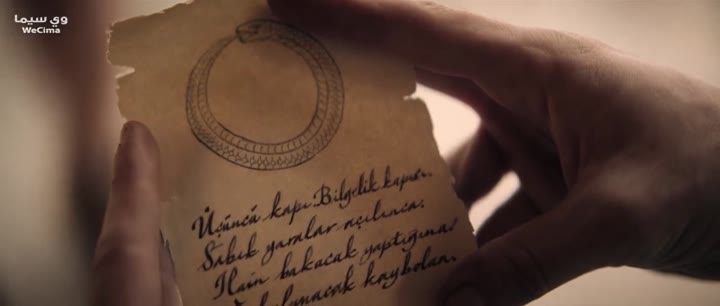 وي سيما
WeCima
Üçüncü kapı Bilgelik kapısı.
Sabık yaralar açılınca.
Hain bakacak yaptığına
bulunacak kaybolan.